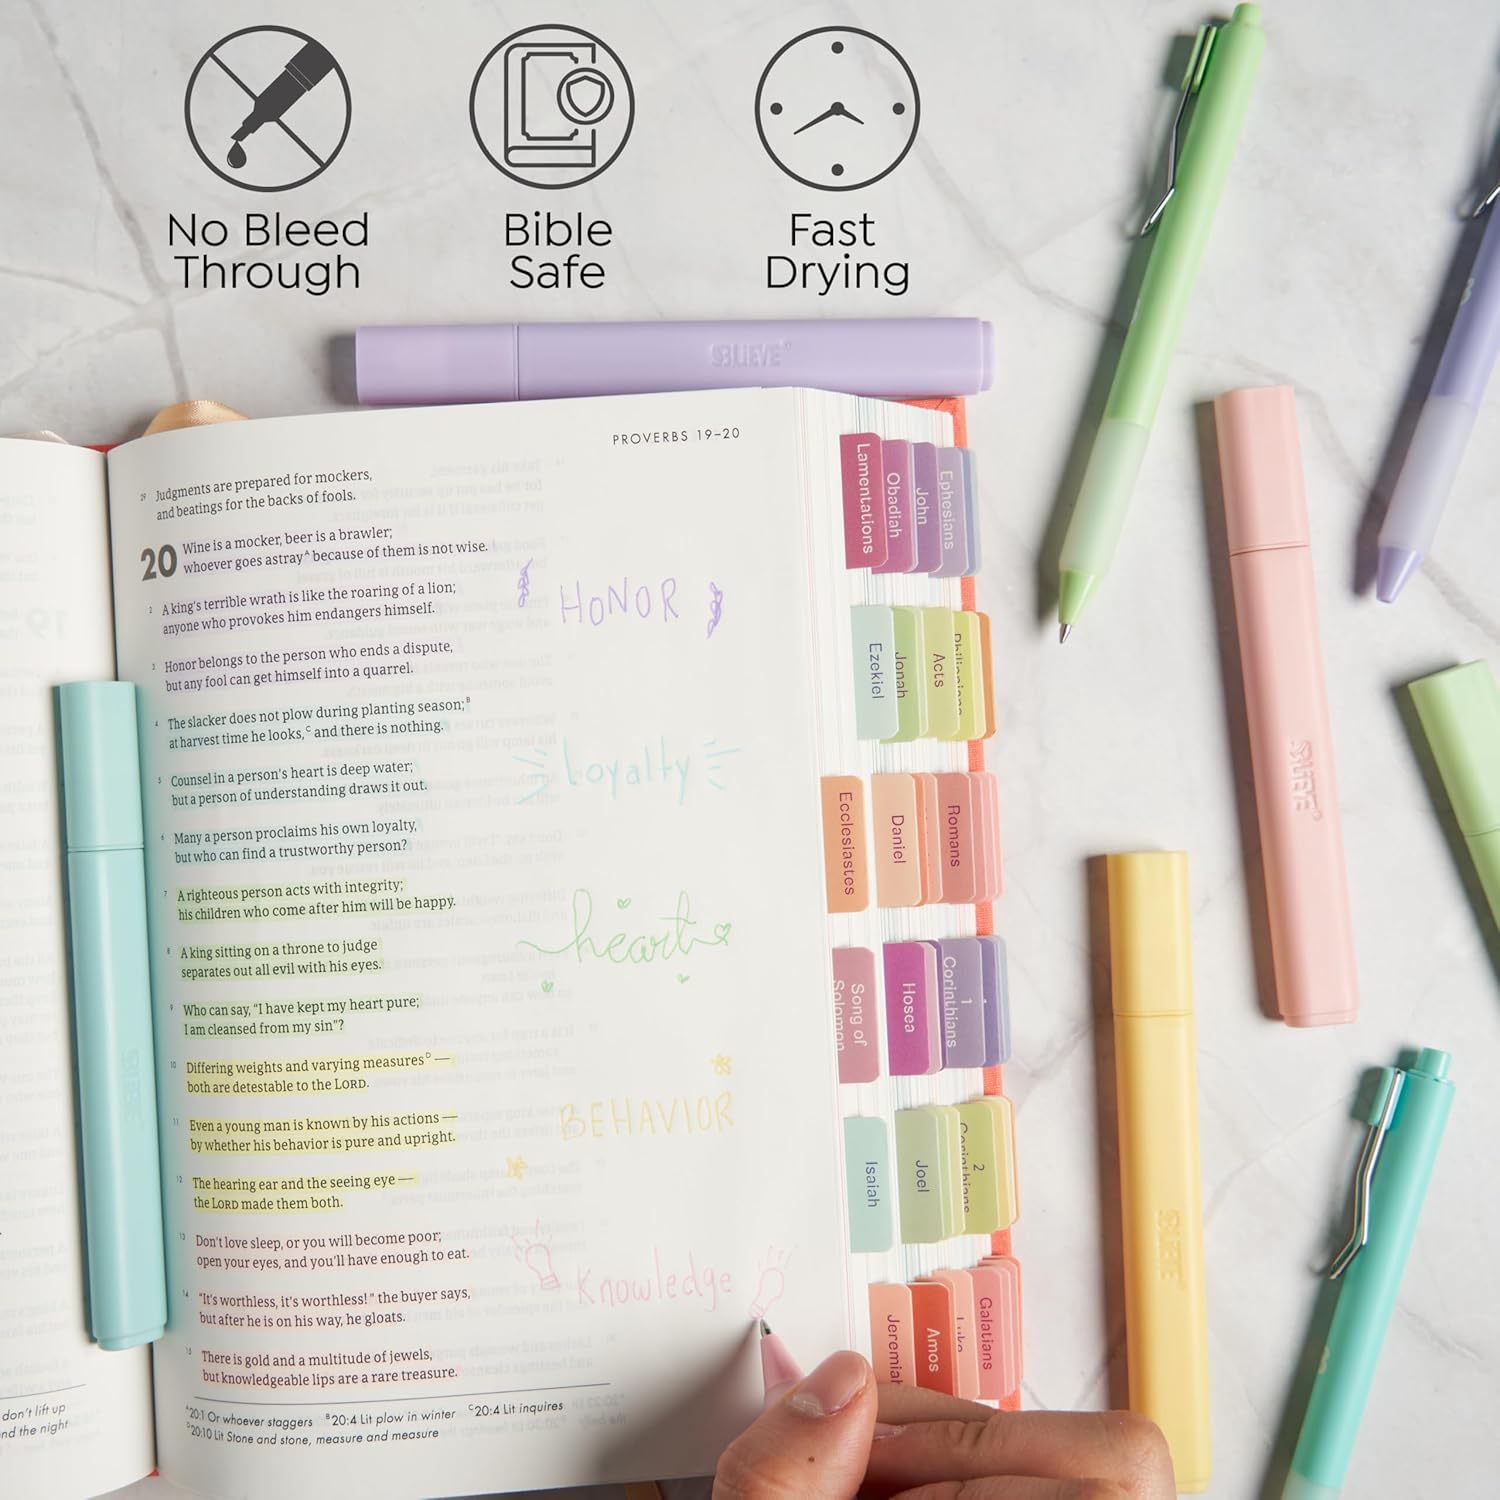 No Bleed
Through
Bible
Safe
Fast
Drying
BLIEVE
PROVERBS 19–20
29 Judgments are prepared for mockers,
and beatings for the backs of fools.
20 Wine is a mocker, beer is a brawler;
whoever goes astrayA because of them is not wise.
2 A king's terrible wrath is like the roaring of a lion;
anyone who provokes him endangers himself.
3 Honor belongs to the person who ends a dispute,
but any fool can get himself into a quarrel.
4 The slacker does not plow during planting season;B
at harvest time he looks,C and there is nothing.
5 Counsel in a person's heart is deep water;
but a person of understanding draws it out.
6 Many a person proclaims his own loyalty,
but who can find a trustworthy person?
7 A righteous person acts with integrity;
his children who come after him will be happy.
8 A king sitting on a throne to judge
separates out all evil with his eyes.
9 Who can say, “I have kept my heart pure;
I am cleansed from my sin”?
10 Differing weights and varying measuresD —
both are detestable to the LORD.
11 Even a young man is known by his actions —
by whether his behavior is pure and upright.
12 The hearing ear and the seeing eye —
the LORD made them both.
13 Don't love sleep, or you will become poor;
open your eyes, and you'll have enough to eat.
14 “It's worthless, it's worthless!” the buyer says,
but after he is on his way, he gloats.
15 There is gold and a multitude of jewels,
but knowledgeable lips are a rare treasure.
A20:1 Or whoever staggers B20:4 Lit plow in winter C20:4 Lit inquires
D20:10 Lit Stone and stone, measure and measure
don't lift up
nd the night
HONOR
loyalty
heart
BEHAVIOR
Knowledge
Lamentations
Obadiah
John
Ephesians
Ezekiel
Jonah
Acts
Philippians
Ecclesiastes
Daniel
Romans
Song of
Solomon
Hosea
1
Corinthians
Isaiah
Joel
2
Corinthians
Jeremiah
Amos
Luke
Galatians
BLIEVE
BLIEVE